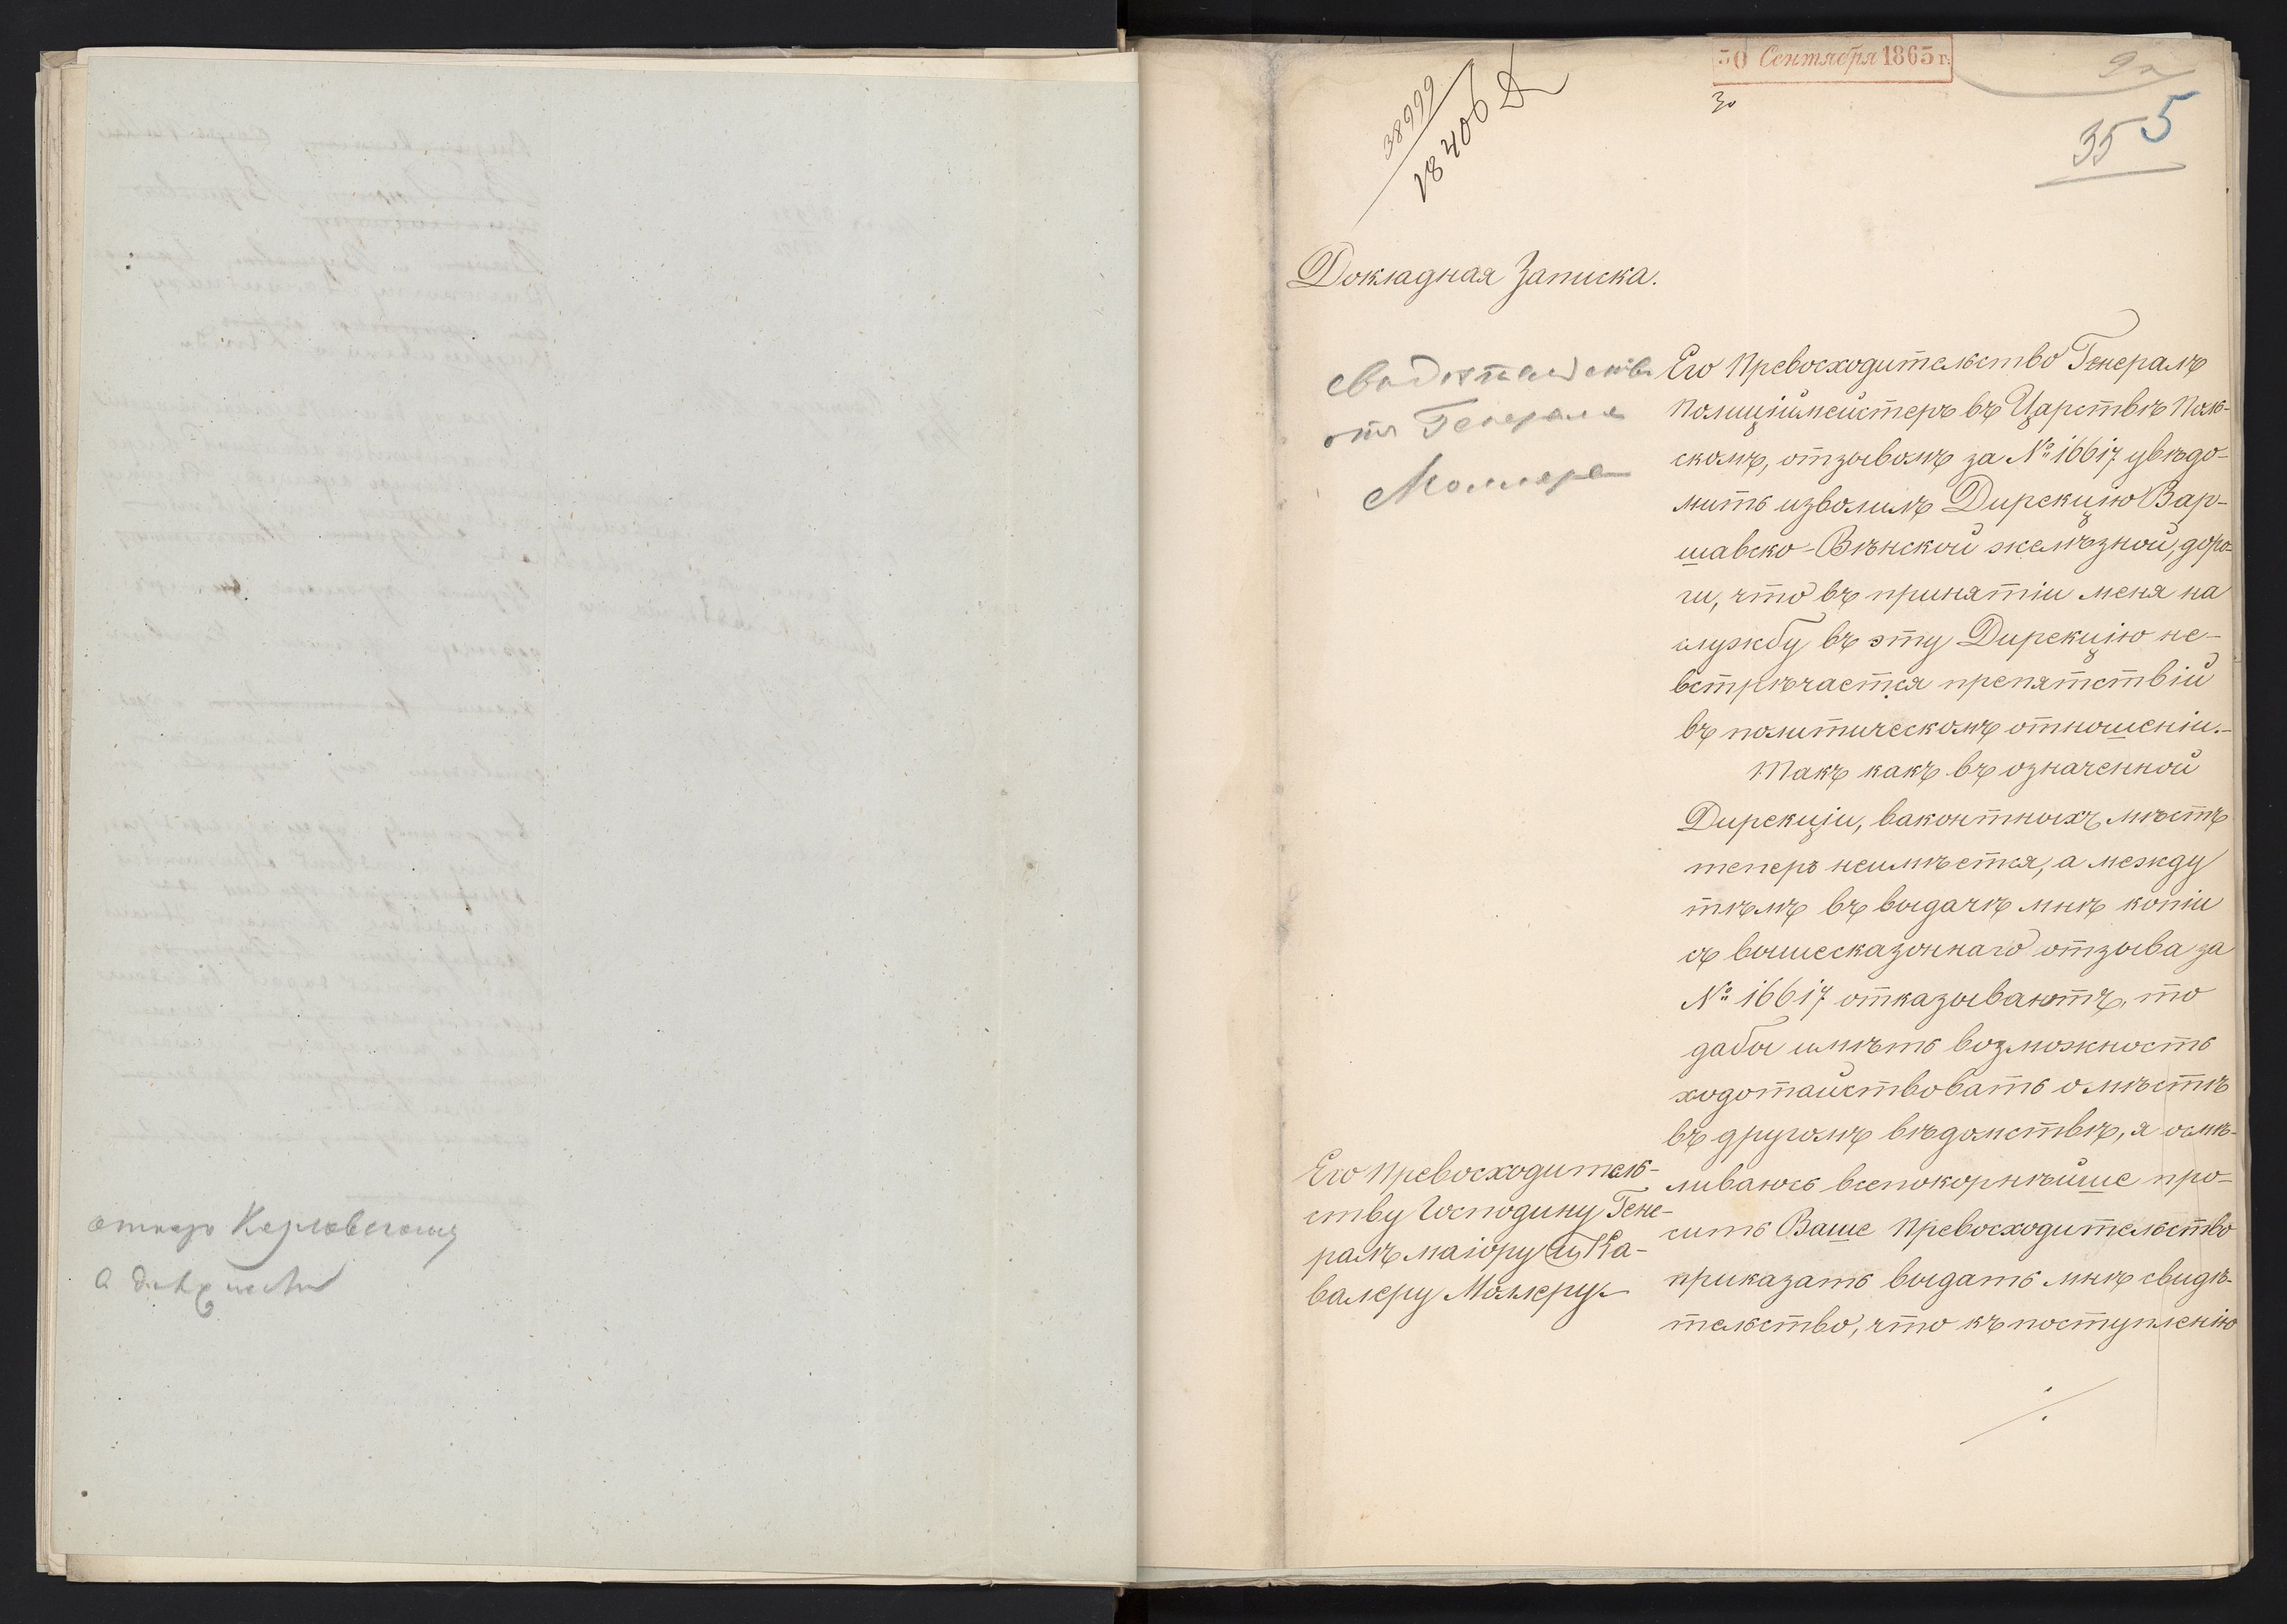 отказъ
30 Сентября 1865 г.
30
38999
18406
35 5
Докладная Записка.
свидѣтельство
отъ Генерала
Моллера
Его Превосходительство Генералъ
Полиціймейстеръ въ Царствѣ Поль-
скомъ, отзывомъ за № 16617 увѣдо-
мить изволилъ Дирекцію Вар-
шавско-Вѣнской желѣзной, доро-
ги, что въ принятіи меня на
службу въ эту Дирекцію не-
встрѣчается препятствій
въ политическомъ отношеніи.-
Такъ какъ въ означенной
Дирекціи, ваконтныхъ мѣстъ
теперь неимѣется, а между
тѣмъ въ выдачѣ мнѣ копіи
съ вышесказоннаго отзыва за
№ 16617 отказываютъ, то
дабы имѣть возможность
ходотайствовать о мѣстѣ
въ другомъ вѣдомствѣ, я осмѣ-
ливаюсь всепокорнѣйше про-
сить Ваше Превосходительство
приказать выдать мнѣ свидѣ-
тельство, что къ поступленію
Его Превосходитель-
ству Господину Гене-
ралъ маіору и Ка-
валеру Моллеру